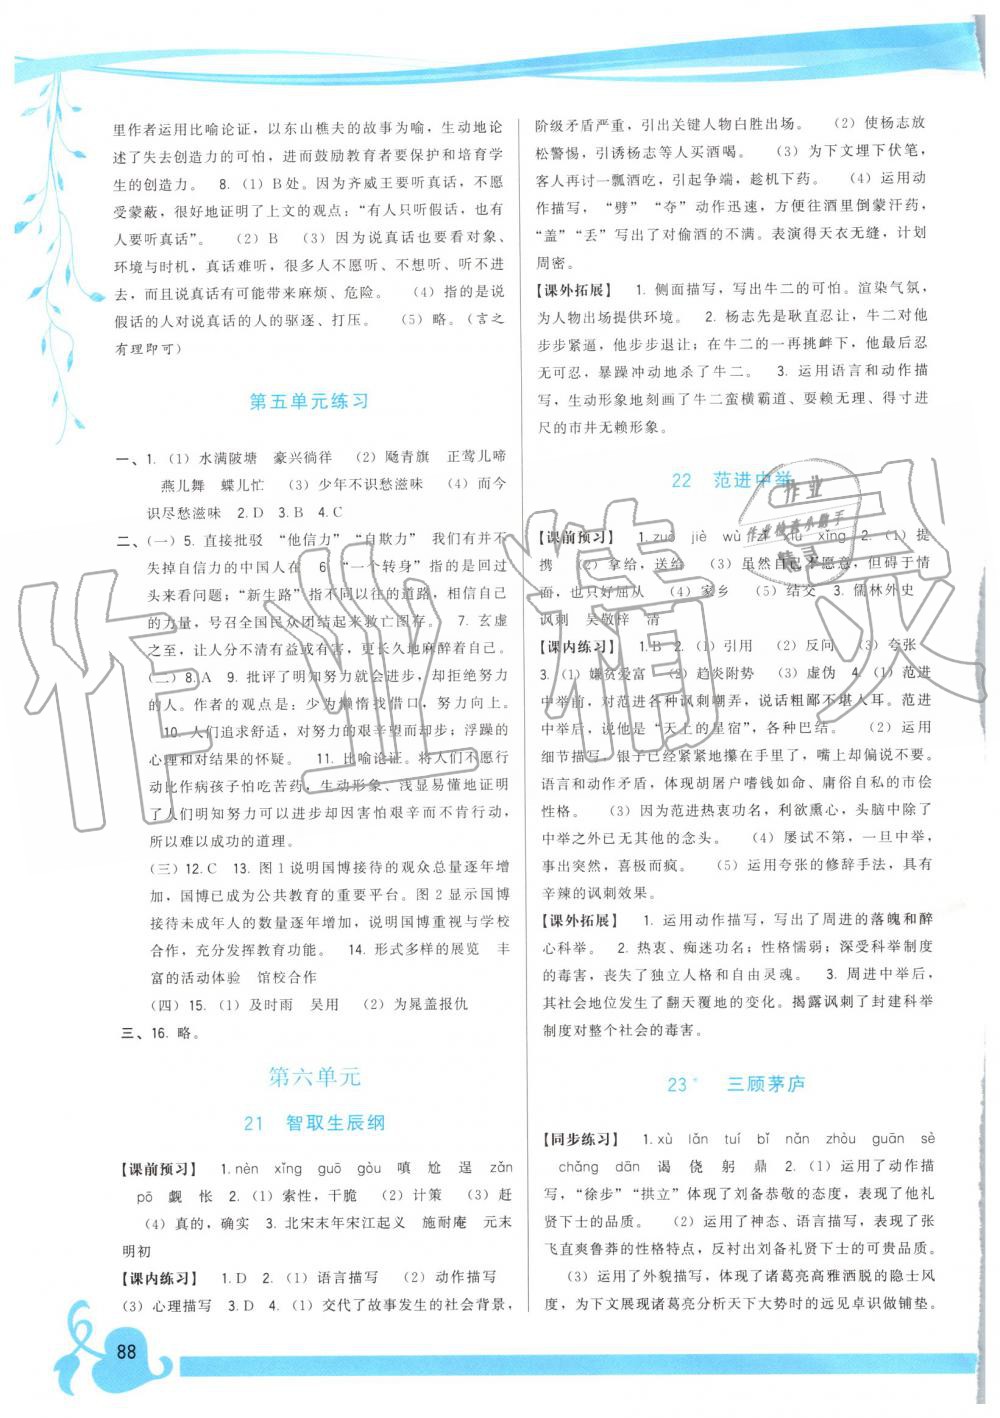 里作者运用比喻论证，以东山樵夫的故事为喻，生动地论
述了失去创造力的可怕，进而鼓励教育者要保护和培育学
生的创造力。 8.（1）B处。因为齐威王要听真话，不愿
受蒙蔽，很好地证明了上文的观点：“有人只听假话，也有
人要听真话”。 （2）B （3）因为说真话也要看对象、
环境与时机，真话难听，很多人不愿听、不想听、听不进
去，而且说真话有可能带来麻烦、危险。 （4）指的是说
假话的人对说真话的人的驱逐、打压。 （5）略。（言之
有理即可）
第五单元练习
一、1.（1）水满陂塘 豪兴徜徉 （2）飐青旗 正莺儿啼
燕儿舞 蝶儿忙 （3）少年不识愁滋味 （4）而今
识尽愁滋味 2. D 3. B 4. C
二、（一）5. 直接批驳 “他信力” “自欺力” 我们有并不
失掉自信力的中国人在 6. “一个转身”指的是回过
头来看问题；“新生路”指不同以往的道路，相信自己
的力量，号召全国民众团结起来救亡图存。 7. 玄虚
之至，让人分不清有益或有害，更长久地麻醉着自己。
（二）8. A 9. 批评了明知努力就会进步，却拒绝努力
的人。作者的观点是：少为懒惰找借口，努力向上。
10. 人们追求舒适，对努力的艰辛望而却步；浮躁的
心理和对结果的怀疑。 11. 比喻论证。将人们不愿行
动比作病孩子怕吃苦药，生动形象、浅显易懂地证明
了人们明知努力可以进步却因害怕艰辛而不肯行动，
所以难以成功的道理。
（三）12. C 13. 图1说明国博接待的观众总量逐年增
加，国博已成为公共教育的重要平台。图2显示国博
接待未成年人的数量逐年增加，说明国博重视与学校
合作，充分发挥教育功能。 14. 形式多样的展览 丰
富的活动体验 馆校合作
（四）15.（1）及时雨 吴用 （2）为晁盖报仇
三、16. 略。
第六单元
21 智取生辰纲
【课前预习】 1. nèn xǐng guō gòu 嗔 尬 逞 zǎn
pō 觑 怅 2.（1）索性，干脆 （2）计策 （3）赶
（4）真的，确实 3. 北宋末年宋江起义 施耐庵 元末
明初
【课内练习】 1. D 2.（1）语言描写 （2）动作描写
（3）心理描写 3. D 4.（1）交代了故事发生的社会背景，
88
阶级矛盾严重，引出关键人物白胜出场。 （2）使杨志放
松警惕，引诱杨志等人买酒喝。 （3）为下文埋下伏笔，
客人再讨一瓢酒吃，引起争端，趁机下药。 （4）运用动
作描写，“劈”“夺”动作迅速，方便往酒里倒蒙汗药，
“盖”“丢”写出了对偷酒的不满。表演得天衣无缝，计划
周密。
【课外拓展】 1. 侧面描写，写出牛二的可怕。渲染气氛，
为人物出场提供环境。 2. 杨志先是耿直忍让，牛二对他
步步紧逼，他步步退让；在牛二的一再挑衅下，他最后忍
无可忍，暴躁冲动地杀了牛二。 3. 运用语言和动作描
写，生动形象地刻画了牛二蛮横霸道、耍赖无理、得寸进
尺的市井无赖形象。
22 范进中举
【课前预习】 1. zuó jiè wù zī xiū xǐng 2.（1）提
携 （2）拿给，送给 （3）虽然自己不愿意，但碍于情
面，也只好屈从 （4）家乡 （5）结交 3. 儒林外史
讽刺 吴敬梓 清
【课内练习】 1. B 2.（1）引用 （2）反问 （3）夸张
3.（1）嫌贫爱富 （2）趋炎附势 （3）虚伪 4.（1）范进
中举前，对范进各种讽刺嘲弄，说话粗鄙不堪入耳。范进
中举后，说他是“天上的星宿”，各种巴结。 （2）运用
细节描写，银子已经紧紧地攥在手里了，嘴上却偏说不要。
语言和动作矛盾，体现胡屠户嗜钱如命、庸俗自私的市侩
性格。 （3）因为范进热衷功名，利欲熏心，头脑中除了
中举之外已无其他的念头。 （4）屡试不第，一旦中举，
事出突然，喜极而疯。 （5）运用夸张的修辞手法，具有
辛辣的讽刺效果。
【课外拓展】 1. 运用动作描写，写出了周进的落魄和醉
心科举。 2. 热衷、痴迷功名；性格懦弱；深受科举制度
的毒害，丧失了独立人格和自由灵魂。 3. 周进中举后，
其社会地位发生了翻天覆地的变化。揭露讽刺了封建科举
制度对整个社会的毒害。
23* 三顾茅庐
【同步练习】 1. xù lǎn tuí bǐ nǎn zhòu guān sè
chǎng dān 谒 侥 躬 鼎 2.（1）运用了动作描
写，“徐步”“拱立”体现了刘备恭敬的态度，表现了他礼
贤下士的品质。 （2）运用了神态、语言描写，表现了张
飞直爽鲁莽的性格特点，反衬出刘备礼贤下士的可贵品质。
（3）运用了外貌描写，体现了诸葛亮高雅洒脱的隐士风
度，为下文展现诸葛亮分析天下大势时的远见卓识做铺垫。
作业精灵
作业
作业检查小助手
精灵